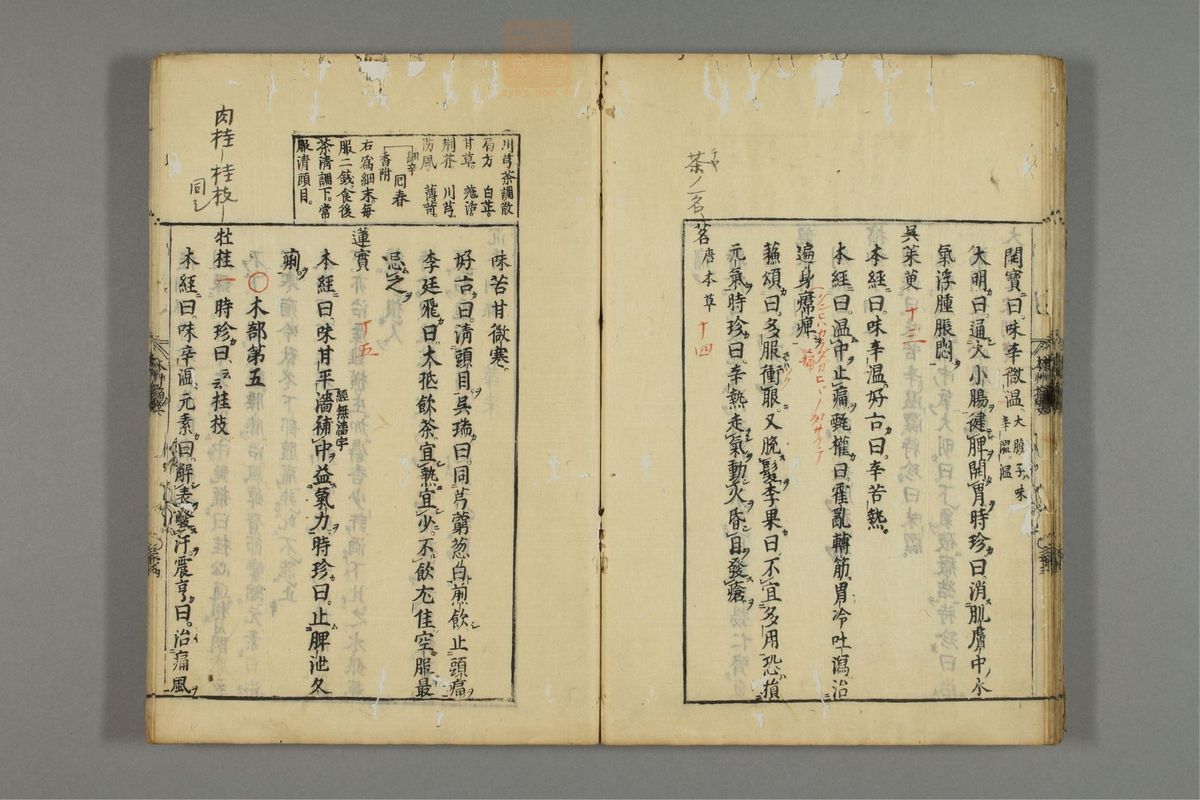 開寶曰味辛微温 大腹子味辛澀温
大明曰通大小腸健脾開胃時珍曰消肌膚中水
氣浮腫脹悶
吳茱萸 十三
本經曰味辛温好古曰辛苦熱
本經曰温中止痛甄權曰霍亂轉筋胃冷吐瀉治
遍身㾦痺
蘓頌曰多服衝眼又脱髮李果曰不宜多用恐損
元氣時珍曰辛熱走氣動火昏目發瘡
茗 唐本草 十四
茶ノ一名
チヤ
味苦甘微寒
好古曰清頭目吳瑞曰同芎藭葱白煎飲止頭痛
李廷飛曰大抵飲茶宜熱宜少不飲尤佳空服最
忌之
蓮實 十五
本經曰味甘平濇補中益氣力時珍曰止脾泄久
經無濇字
痢
〇木部第五
牡桂 一 時珍曰云桂枝
本經曰味辛温元素曰解表發汗震亨曰治痛風
川芎茶調散
局方 白芷
甘草 羗活
荆芥 川芎
防風 薄苛
細辛 香附 囘春
右爲細末每
服二錢食後
茶清調下常
服清頭目
肉桂 桂枝
同シ